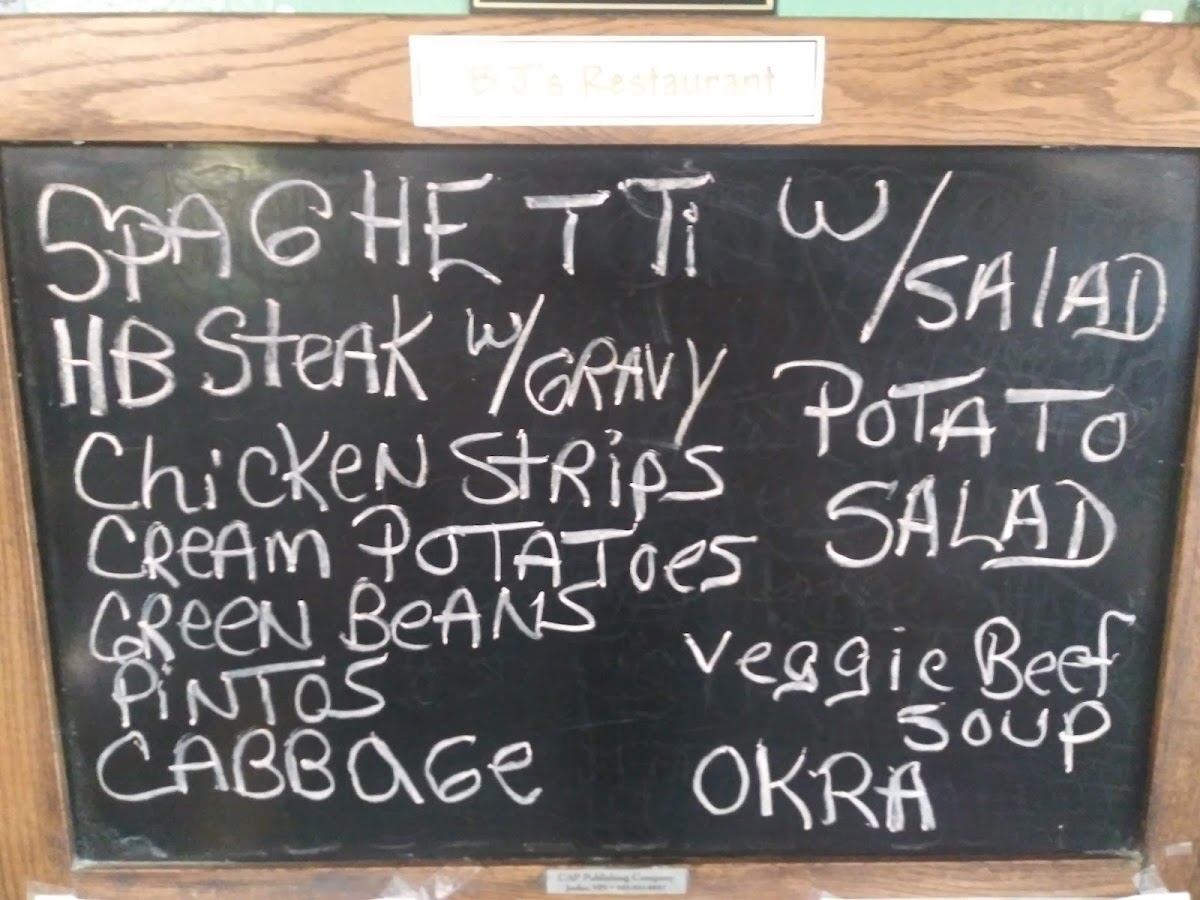 BJ's Restaurant
SPAGHETTi W/SALAD
HB SteAK W/GRAVY
ChiCKeN StRipS
CReAM POTATOes
GReeN BeANS
PiNTOS
CABBAGe
POTATO
SALAD
Veggie Beef
SOUP
OKRA
CAP Publishing Company